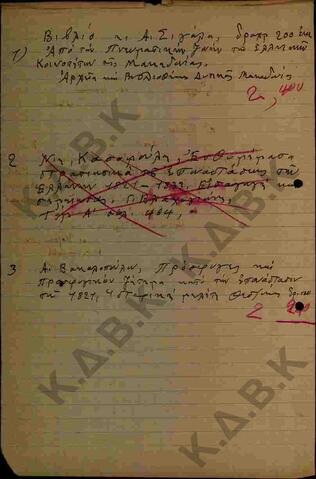 Βιβλίο Α. Σιγάλα, δραχμ 200
1) Από την Πνευματικήν ζωήν των Ελληνικών
Κοινοτήτων της Μακεδονίας.
Αρχεία και Βιβλιοθήκαι Δυτικής Μακεδονίας
2 Νικ. Κασομούλη, Ενθυμήματα
στρατιωτικά της επαναστάσεως των
Ελλήνων 1821-1833. Εισαγωγή και
σημειώσεις Γ. Βλαχογιάννη,
Τομ. Α' σελ. 484,
3 Α. Βακαλοπούλου, Πρόσφυγες και
προσφυγικόν ζήτημα κατά την επανάστασιν
του 1821, Ιστορική μελέτη Θεσ/νίκη
Κ.Δ.Β.Κ